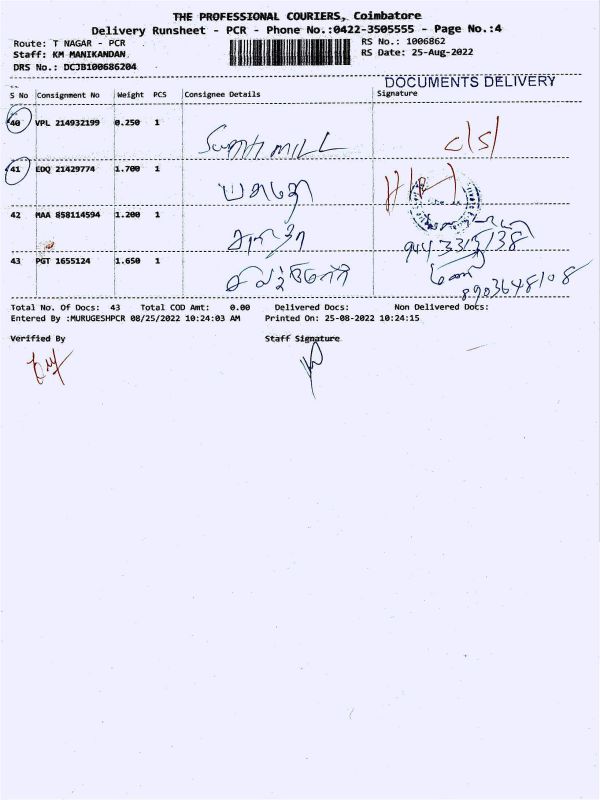 THE PROFESSIONAL COURIERS, Coimbatore
Delivery Runsheet - PCR - Phone No.:0422-3505555 - Page No.:4
Route: T NAGAR - PCR
RS No.: 1006862
Staff: KM MANIKANDAN
RS Date: 25-Aug-2022
DRS No.: DCJB100686204
DOCUMENTS DELIVERY
S No Consignment No Weight PCS Consignee Details Signature
40 VPL 214932199 0.250 1 MILL
41 EDQ 21429774 1.700 1
42 MAA 858114594 1.200 1
43 PGT 1655124 1.650 1 8903648108
Total No. Of Docs: 43 Total COD Amt: 0.00 Delivered Docs: Non Delivered Docs:
Entered By :MURUGESHPCR 08/25/2022 10:24:03 AM Printed On: 25-08-2022 10:24:15
Verified By Staff Signature